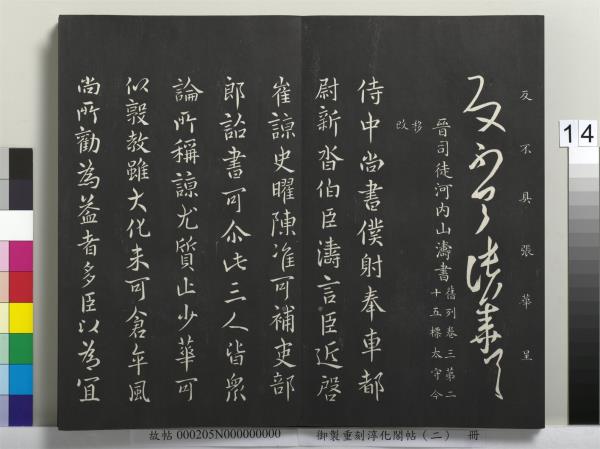 反不具張華呈
反不具張華呈
晉司徒河內山濤書
舊列卷三第二
十五標太守今
移
改
侍中尚書僕射奉車都
尉新沓伯臣濤言臣近啓
崔諒史曜陳准可補吏部
郎詔書可尒此三人皆衆
論所稱諒尤質止少華可
以敦教雖大化未可倉卒風
尚所勸為益者多臣以為宜
14
故帖 000205N000000000 御製重刻淳化閣帖（二） 冊